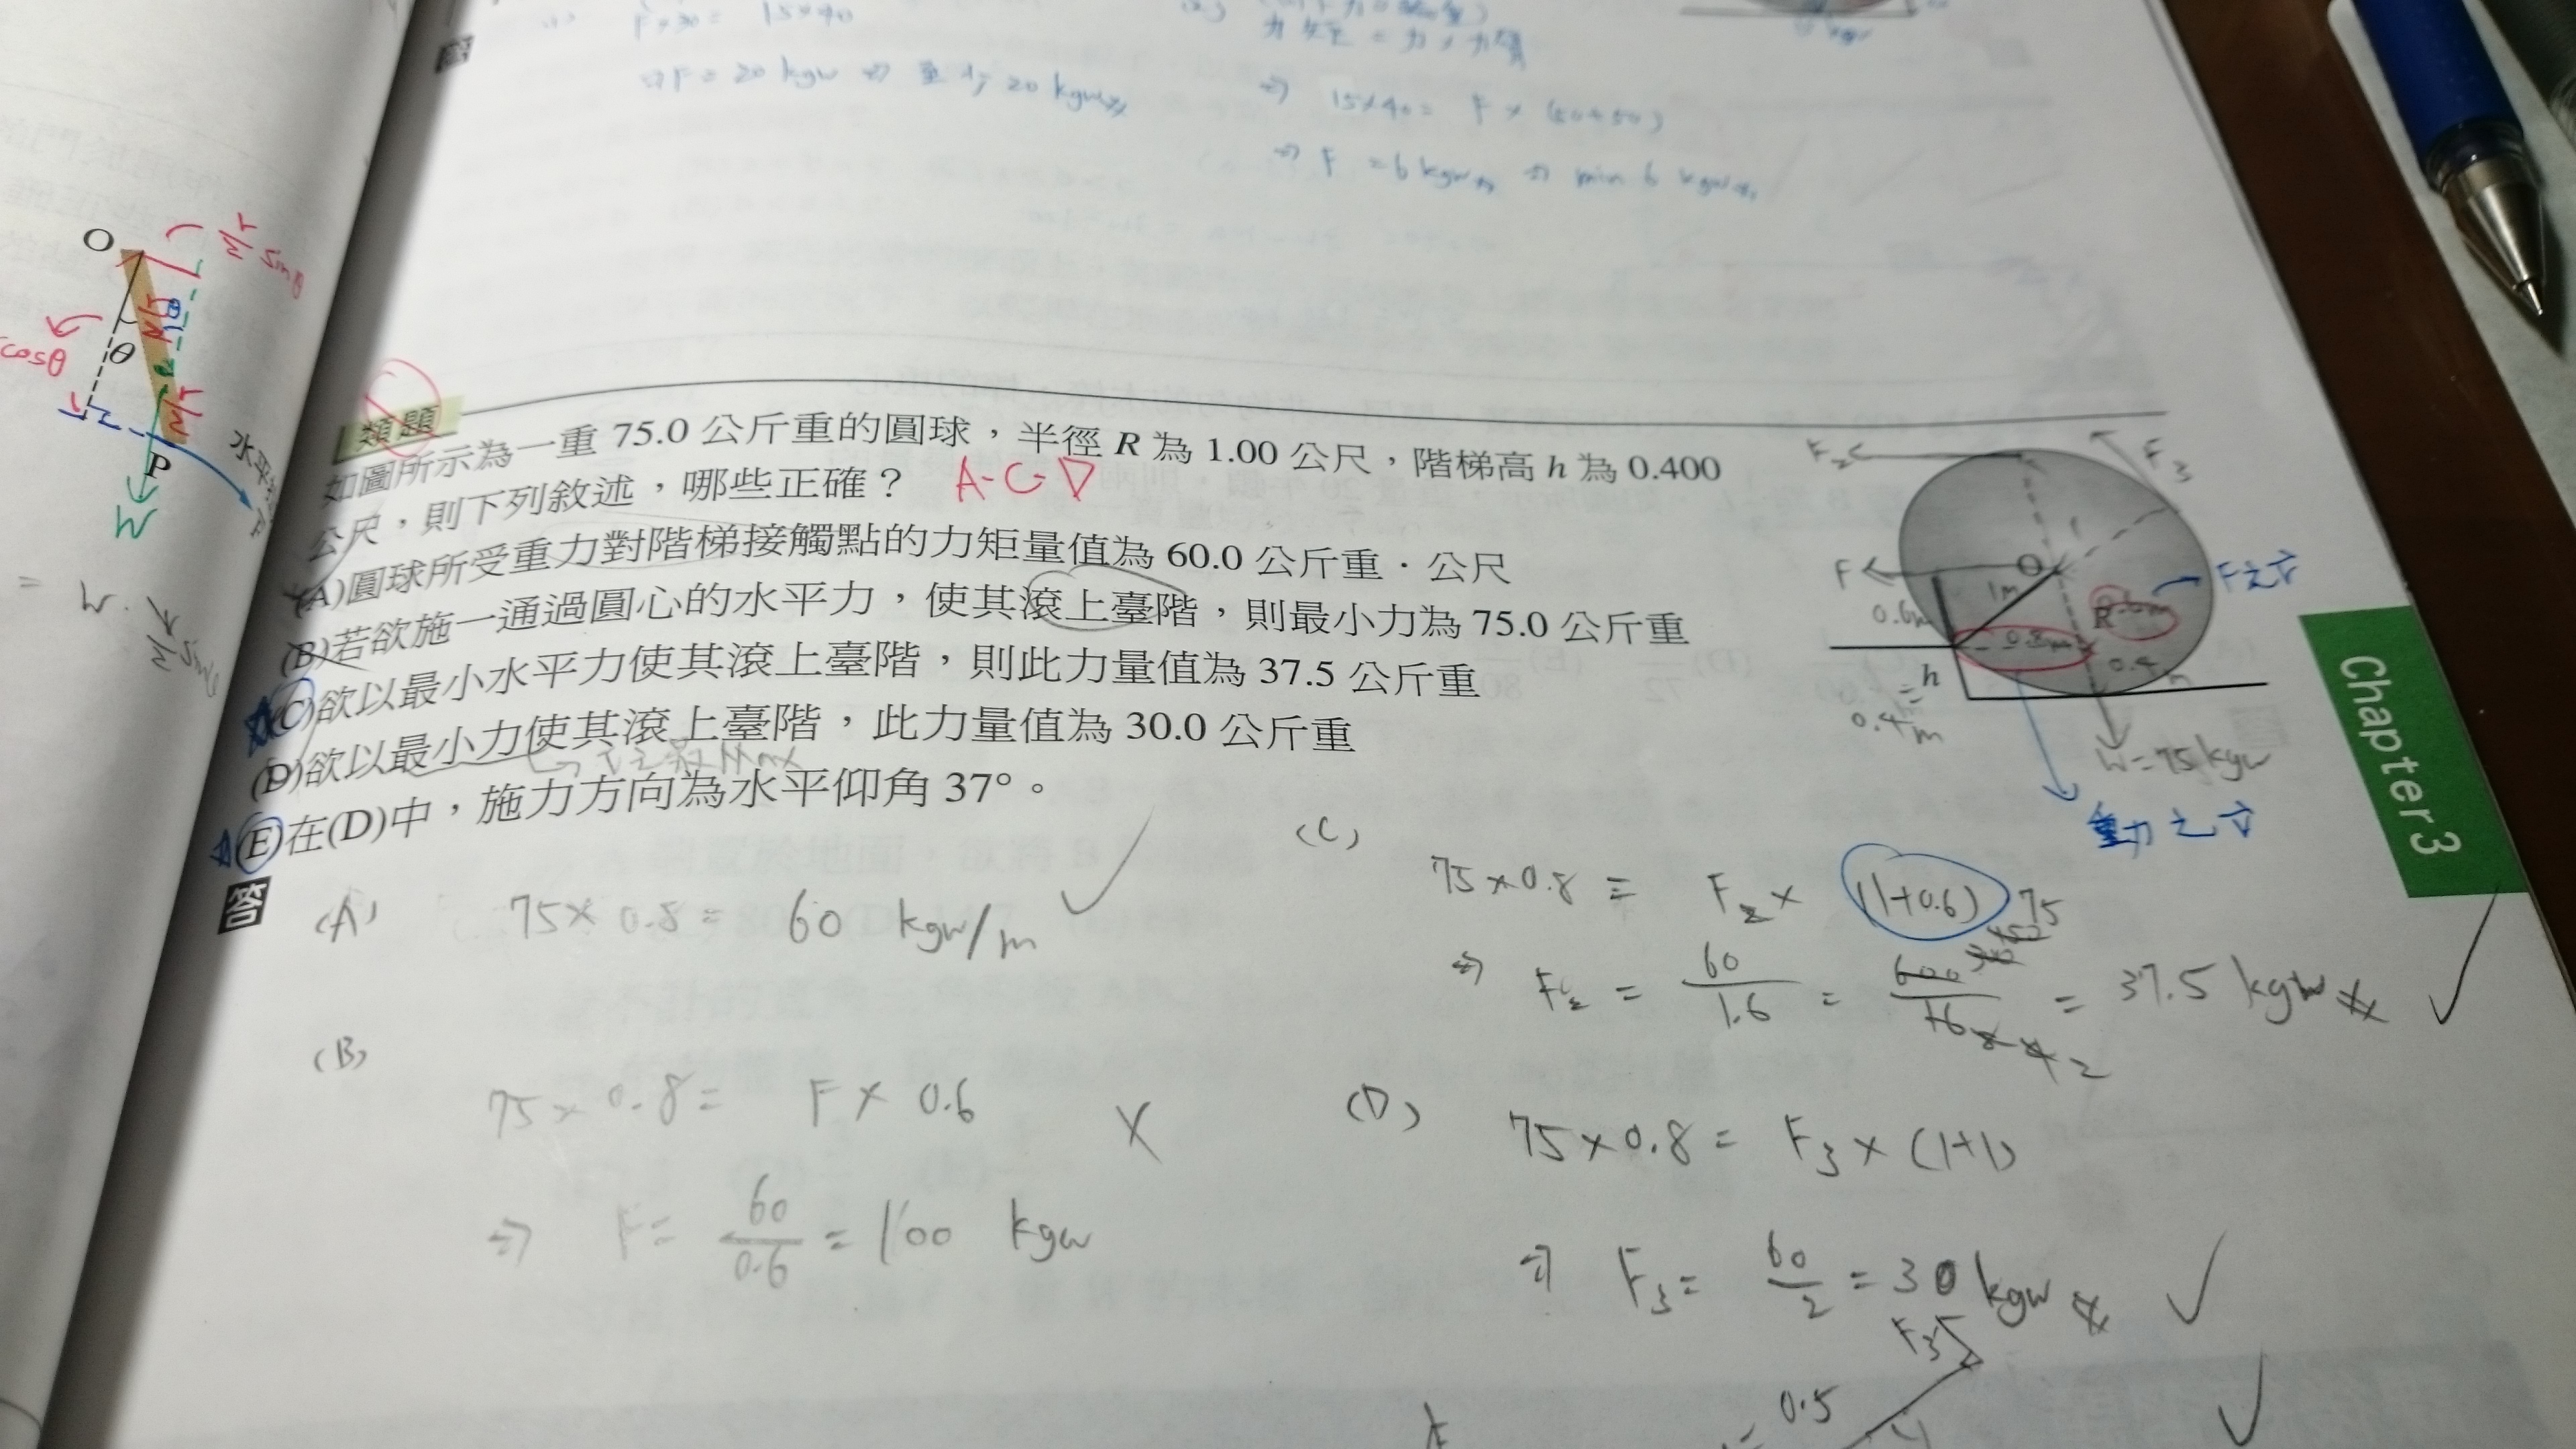 F×30 = 15×40
⇒F = 20 kgw ⇒ 重為 20 kgw
力矩 = 力×力臂
⇒ 15×40 = F × (50+50)
⇒ F = 6 kgw ⇒ min 6 kgw
答
O
θ
cosθ
P
水平
類題
如圖所示為一重 75.0 公斤重的圓球，半徑 R 為 1.00 公尺，階梯高 h 為 0.400
公尺，則下列敘述，哪些正確？ A.C.D
(A)圓球所受重力對階梯接觸點的力矩量值為 60.0 公斤重．公尺
(B)若欲施一通過圓心的水平力，使其滾上臺階，則最小力為 75.0 公斤重
(C)欲以最小水平力使其滾上臺階，則此力量值為 37.5 公斤重
(D)欲以最小力使其滾上臺階，此力量值為 30.0 公斤重
(E)在(D)中，施力方向為水平仰角 37°。
F2
F3
F
O
1m
0.6m
0.8m
R
0.4
h
=
0.4m
W=75 kgw
重力之
Chapter 3
答
(A) 75×0.8 = 60 kgw/m
(B)
75×0.8 = F × 0.6
⇒ F = 60/0.6 = 100 kgw
(C)
75×0.8 = F2 × (1+0.6)
⇒ F2 = 60/1.6 = 600/16 = 37.5 kgw
(D) 75×0.8 = F3 × (1+1)
⇒ F3 = 60/2 = 30 kgw
F3
0.5